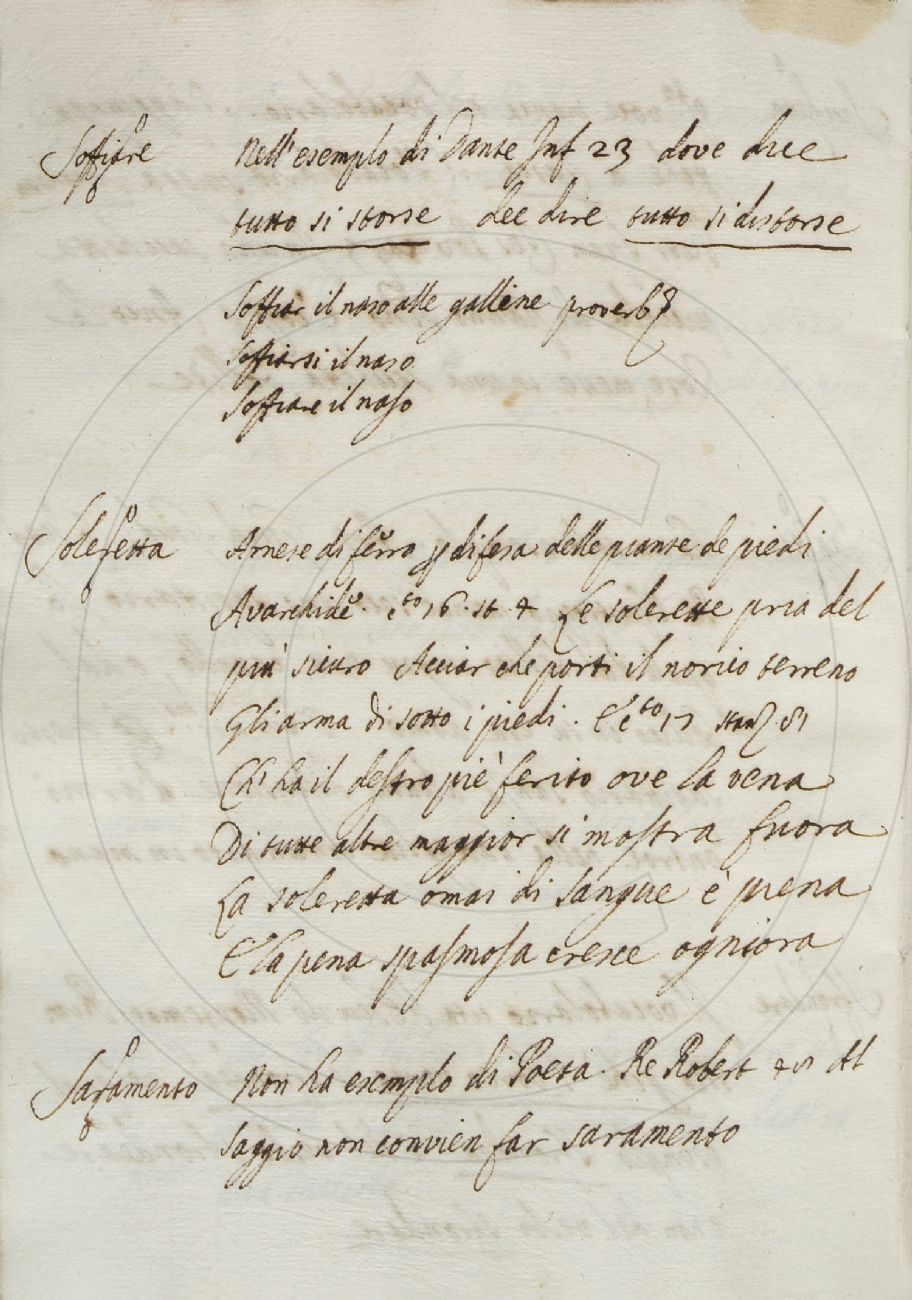 Soffiare Nell'esemplo di Dante Inf 23 dove dice
tutto si storse dee dire tutto si distorse
Soffiar il naso alle galline proverb
Soffiarsi il naso
Soffiare il naso
Soleretta Arnese di ferro p difesa delle piante de piedi
Avarchide. cto 16. st 4 Le solerette pria del
piu sicuro Acciar che porti il norico terreno
Gli arma di sotto i piedi. E cto 17 stanz 81
Ch'ha il destro piè ferito ove la vena
Di tutte altre maggior si mostra fuora
La soleretta omai di sangue è piena
E la pena spasmosa cresce ogniora
Saramento Non ha esemplo di Poeta. Re Robert Al
saggio non convien far saramento